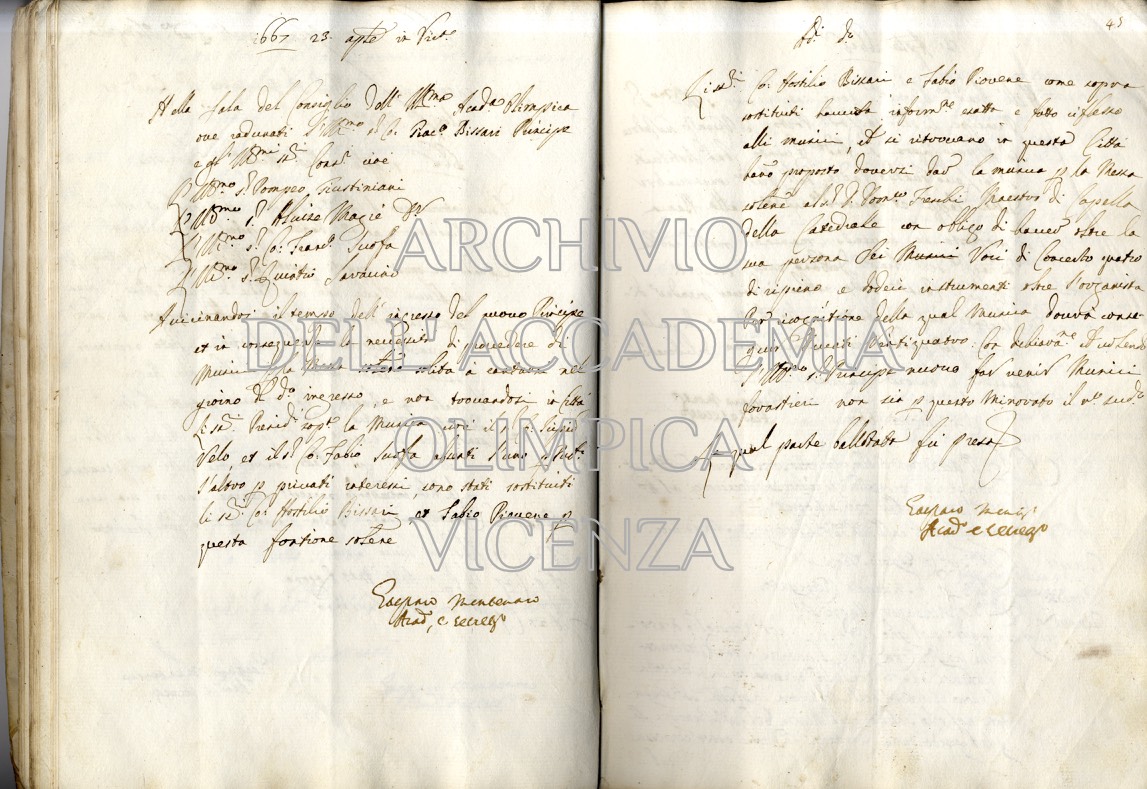 1667 23 aple in Vicˣ
Nella sala del Consiglio dell' Illmª Acadª Olimpica
ove radunati l'Illmº sʳ Co: Bissari Principe
e gl' Illmi sʳⁱ Consˡ cioè
L'Illmº sʳ Pompeo Giustiniani
L'Illmº sʳ Aluise Magrè Dʳ
L'Illmº sʳ Co: Francº
L'Illmº sʳ Quintio Saraceno
Avicinandosi il tempo dell' ingresso del nuovo Principe
et in consequenza la necessità di provedere di
Musici la Messa solita à cantarsi nel
giorno di dº ingresso, e non trovandosi in Città
li sʳⁱ Presidⁱ sopª la Musica cioè il sʳ Co:
Velo, et il sʳ Co: Fabio l'uno
l'altro p privati interessi, sono stati sostituiti
li sʳⁱ Co: Hostilio Bissari et Fabio Piovene p
questa fontione solene
Gasparo Montenaro
Acadº, e Secregº
45
Adì dº
Li sʳⁱ Co: Hostilio Bissari e Fabio Piovene come sopra
sostituiti havuta informⁿᵉ esatta e fatto riflesso
alli musici, che si ritrovano in questa Città
hano proposto doversi dar la musica p la Messa
solene al sʳ D. Domᶜº Freschi Maestro di Capella
della Catedrale con obligo di haver oltre la
sua persona sei Musici Voci di Concerto quatro
di ripieno e dodeci instrumenti oltre l'organista
Per ricognitione della qual Musica dovrà conse-
guir Ducati Vintiquatro. Con dechiaratⁿᵉ che volendo
l'Illmº sʳ Principe nuovo far venir Musici
forastieri non sia p questo
La qual parte ballotada fu presa
Gasparo Mont
Acadº e Secregº
ARCHIVIO
DELL'ACCADEMIA
OLIMPICA
VICENZA